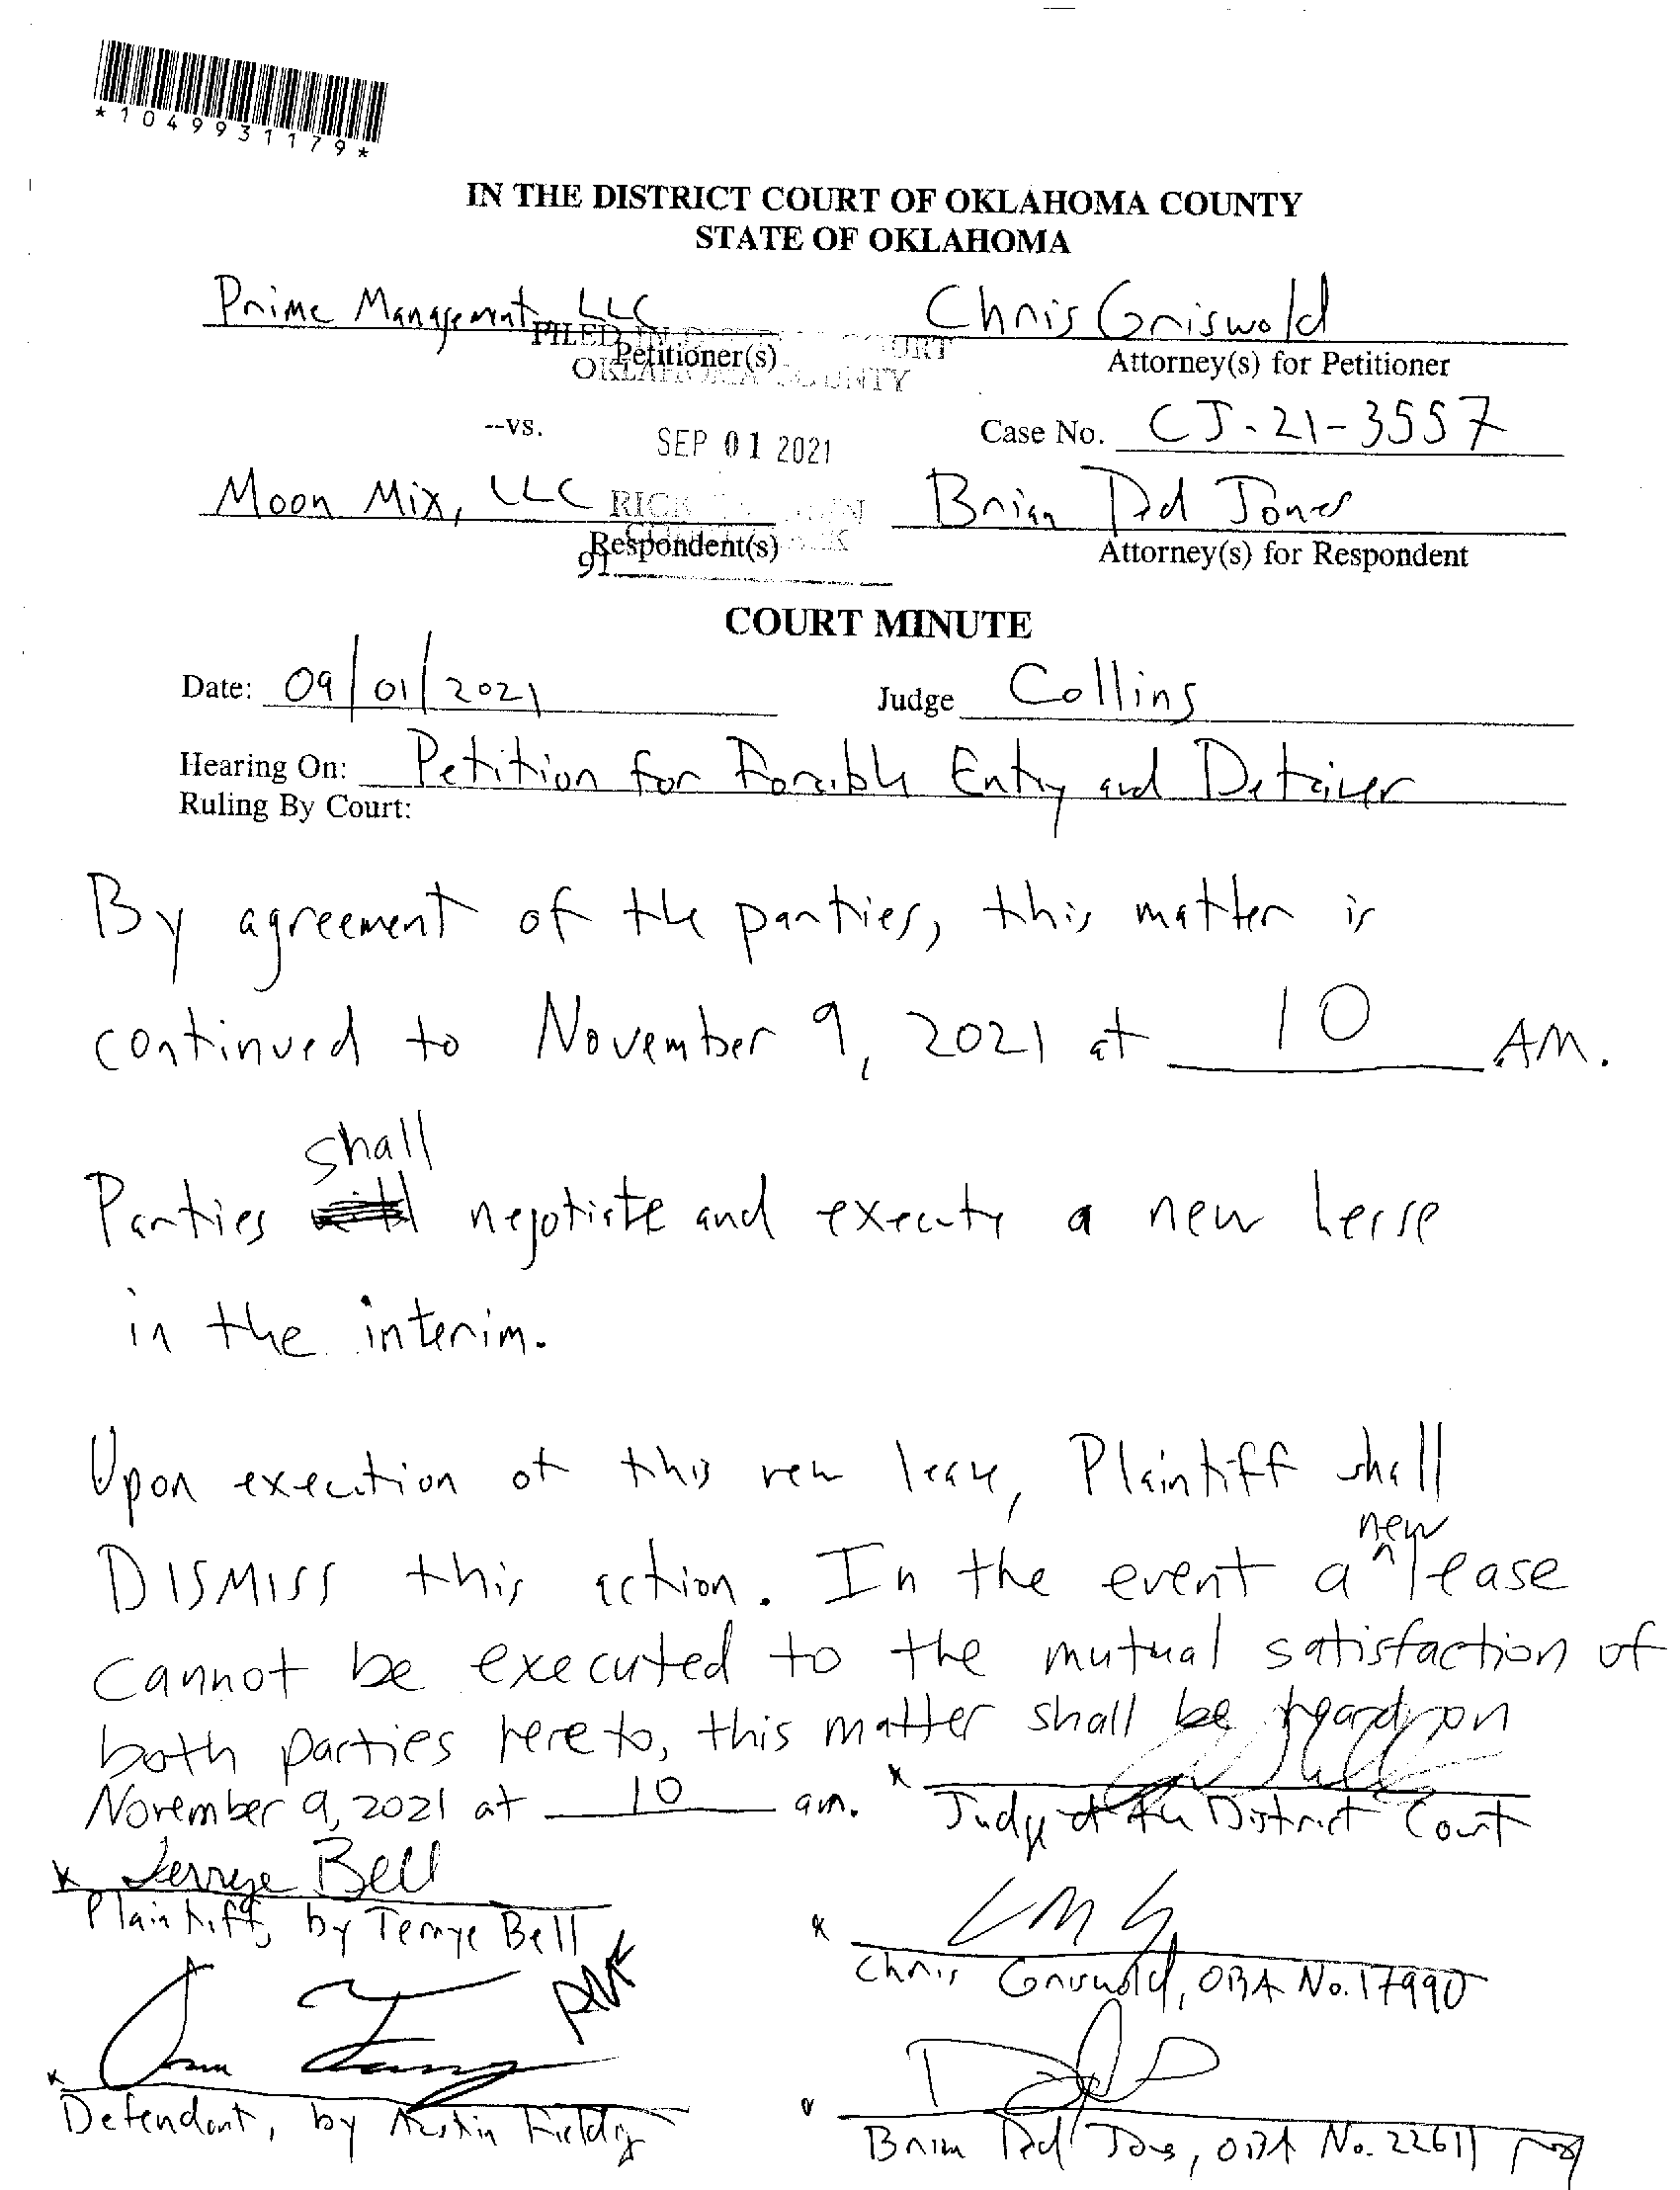 *1049931179*
IN THE DISTRICT COURT OF OKLAHOMA COUNTY
STATE OF OKLAHOMA
Prime Management, LLC Chris Griswold
FILED IN COURT
Petitioner(s) Attorney(s) for Petitioner
OKLAHOMA COUNTY
--vs. SEP 01 2021 Case No. CJ-21-3557
Moon Mix, LLC Brian Jones
RICK
Respondent(s) Attorney(s) for Respondent
91
COURT MINUTE
Date: 09/01/2021 Judge Collins
Hearing On: Petition for Forcible Entry and Detainer
Ruling By Court:
By agreement of the parties, this matter is
continued to November 9, 2021 at 10 AM.
shall
Parties negotiate and execute a new lease
in the interim.
Upon execution of this new lease, Plaintiff shall
new
DISMISS this action. In the event a ^ lease
cannot be executed to the mutual satisfaction of
both parties hereto, this matter shall be heard on
November 9, 2021 at 10 am.
Judge of the District Court
Terrye Bell
Plaintiff, by Terrye Bell
Chris Griswold, OBA No. 17990
Defendant, by Austin
Brian Jones, OBA No. 22611